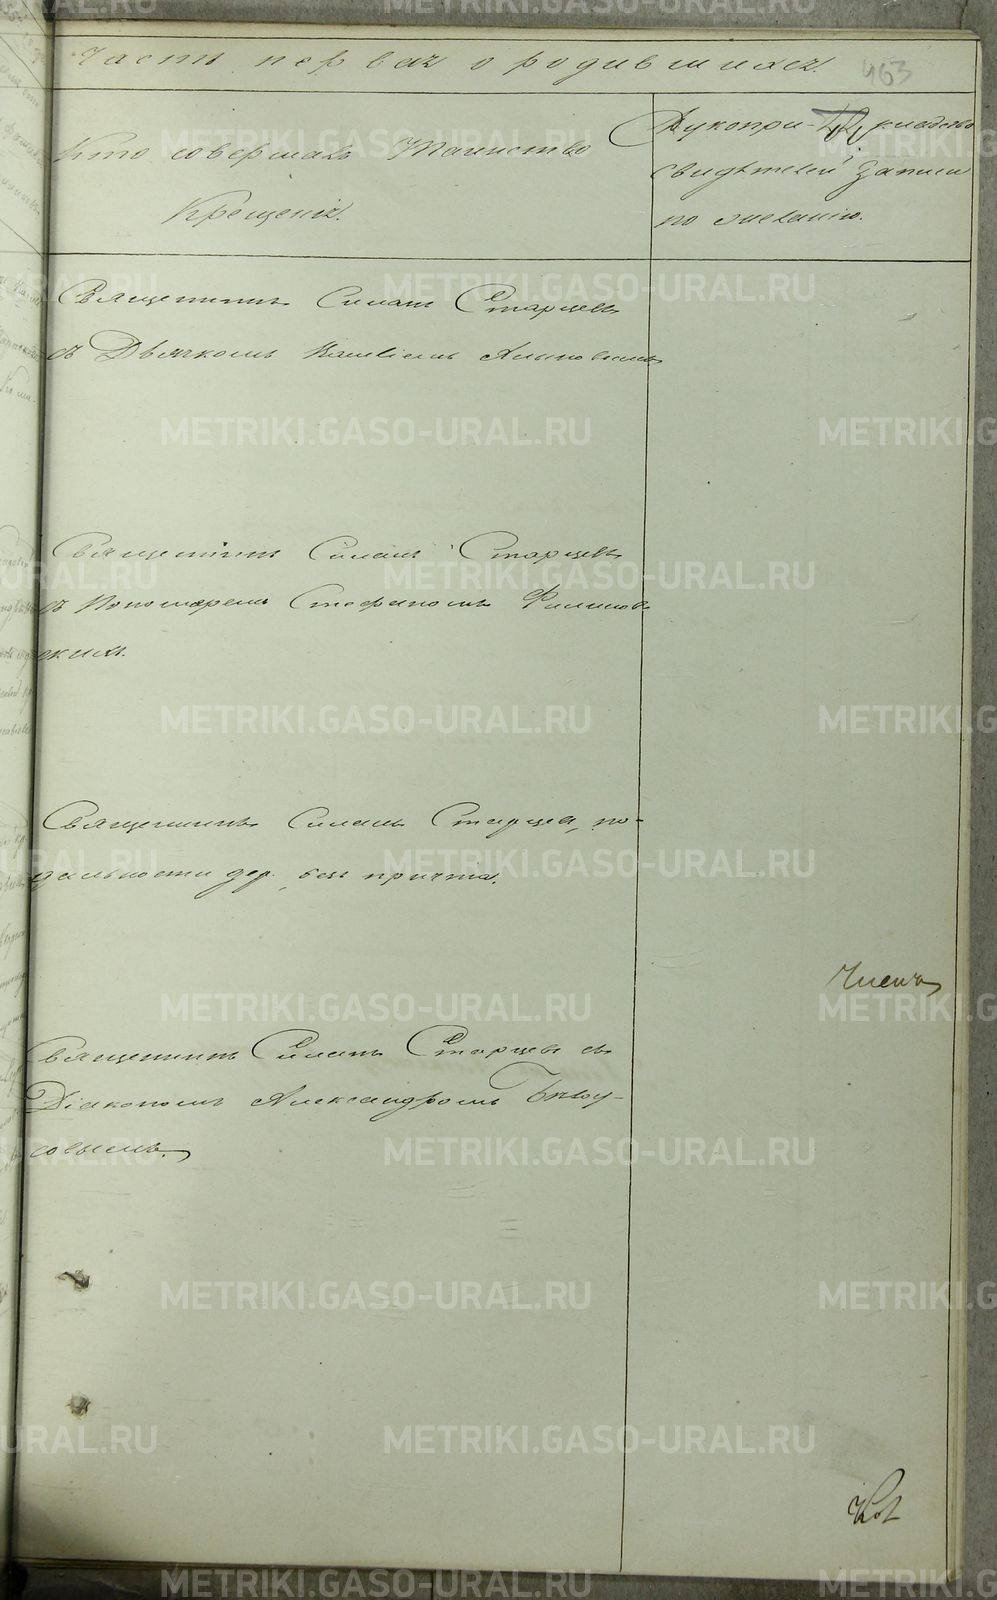 Часть первая о родившихся.
463
Кто совершалъ Таинство
Крещенія.
Рукопри-кладство
свидѣтелей записи
по желанію.
Священникъ Симеонъ Старцевъ
съ Дьячкомъ
Священникъ Симеонъ Старцевъ
съ Пономаремъ Стефаномъ Филинов-
скимъ.
Священникъ Симеонъ Старцевъ, по
дальности дер., безъ причта.
Священникъ Симеонъ Старцевъ съ
Діакономъ Александромъ Бѣлоу-
совымъ.
METRIKI.GASO-URAL.RU